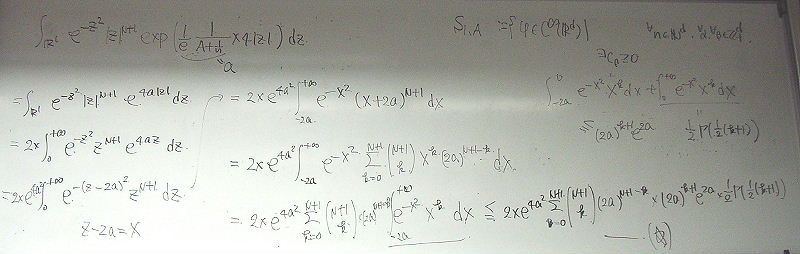 ∫_{ℝ^1} e^{-z^2} |z|^{N+1} exp(1/e · 1/(A+d) × 4|z|) dz.
a
= ∫_{ℝ^1} e^{-z^2} |z|^{N+1} e^{4a|z|} dz
= 2× ∫_0^{+∞} e^{-z^2} z^{N+1} e^{4az} dz.
= 2× e^{4a^2} ∫_0^{+∞} e^{-(z-2a)^2} z^{N+1} dz
z-2a = X
= 2× e^{4a^2} ∫_{-2a}^{+∞} e^{-X^2} (X+2a)^{N+1} dX
= 2× e^{4a^2} ∫_{-2a}^{+∞} e^{-X^2} Σ_{k=0}^{N+1} (N+1 k) X^k (2a)^{N+1-k} dX.
= 2× e^{4a^2} Σ_{k=0}^{N+1} (N+1 k) (2a)^{N+1-k} ∫_{-2a}^{+∞} e^{-X^2} X^k dX ≤ 2× e^{4a^2} Σ_{k=0}^{N+1} (N+1 k) (2a)^{N+1-k} × (2a)^{k+1} e^{2a} × 1/2 Γ(1/2(k+1))
S_{1,A} := { φ ∈ C^∞(ℝ^d) |
∫_{-2a}^0 e^{-X^2} X^k dX + ∫_0^{+∞} e^{-X^2} X^k dX
≤ (2a)^{k+1} e^{2a} 1/2 Γ(1/2(k+1))